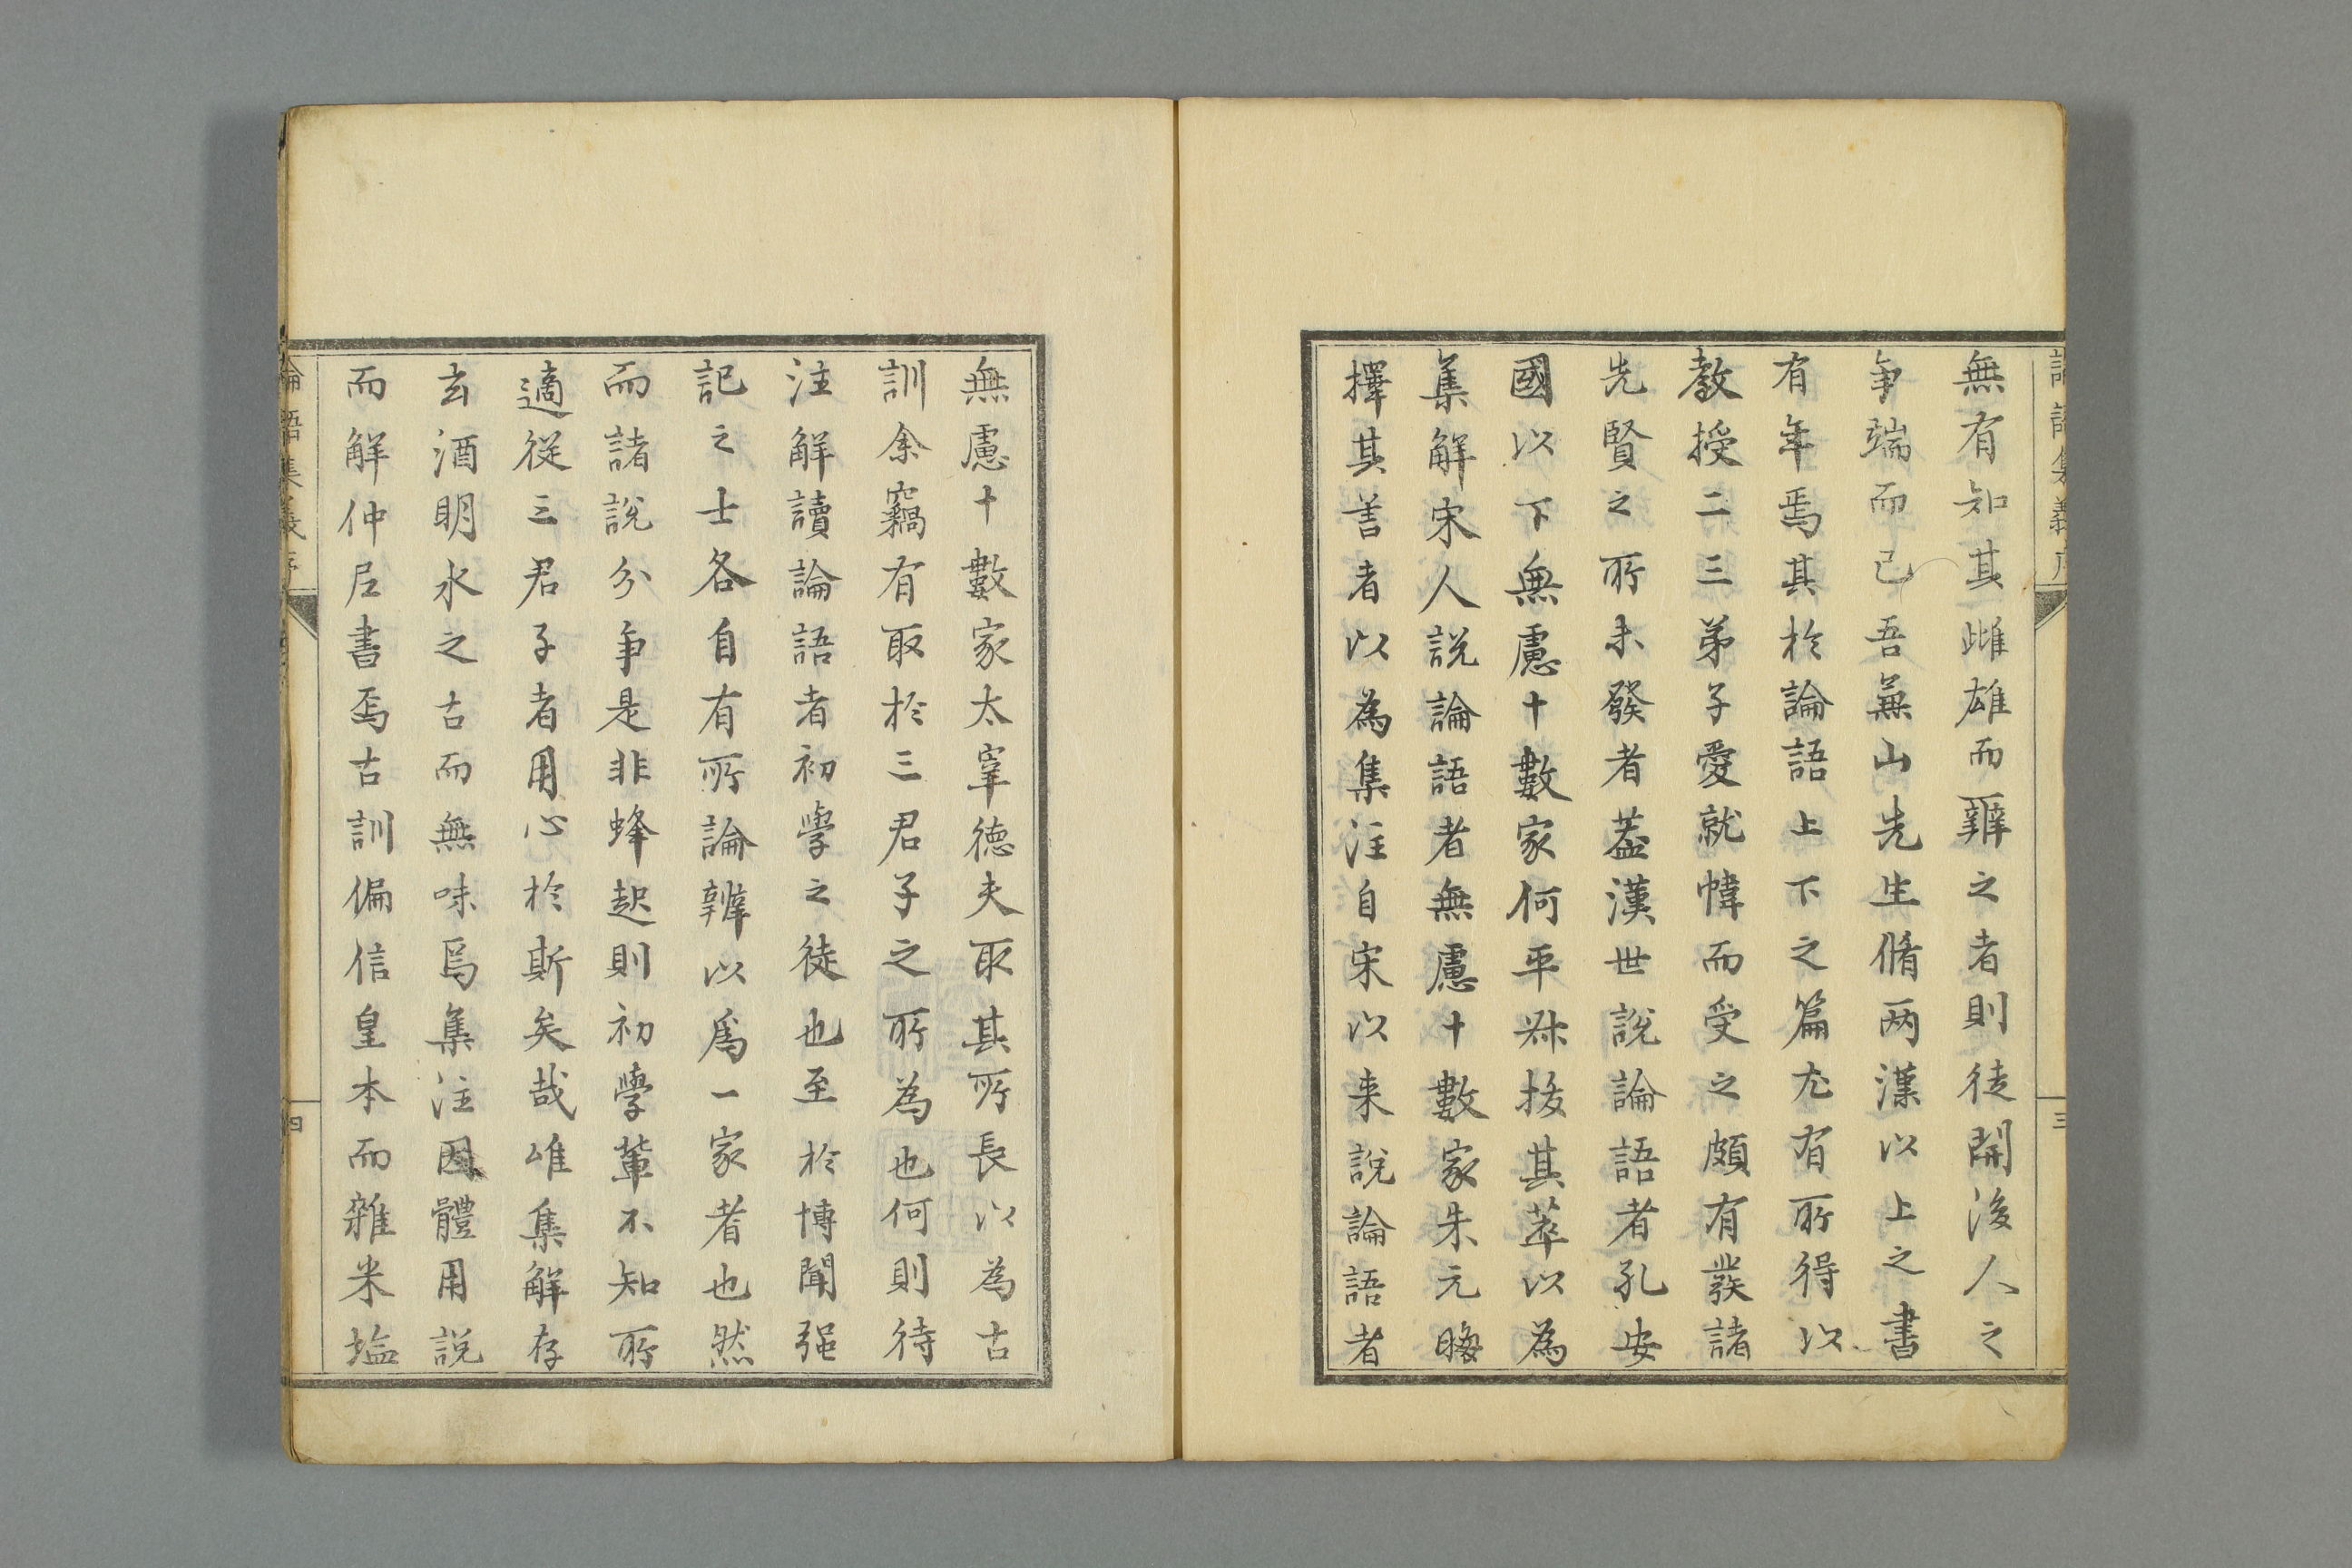 論語集義序
三
無有知其雌雄而辨之者則徒開後人之
爭端而已吾蕪山先生脩两漢以上之書
有年焉其於論語上下之篇尤有所得以
教授二三弟子愛就幃而受之頗有發諸
先賢之所未發者蓋漢世說論語者孔安
國以下無慮十數家何平叔拔其萃以為
集解宋人說論語者無慮十數家朱元晦
擇其善者以為集注自宋以来說論語者
無慮十數家太宰德夫取其所長以為古
訓余竊有取於三君子之所為也何則待
注解讀論語者初學之徒也至於博聞强
記之士各自有所論辨以爲一家者也然
而諸說分爭是非蜂起則初學輩不知所
適從三君子者用心於斯矣哉唯集解存
玄酒明水之古而無味焉集注因體用說
而解仲尼書焉古訓偏信皇本而雜米塩
論語集義序
四